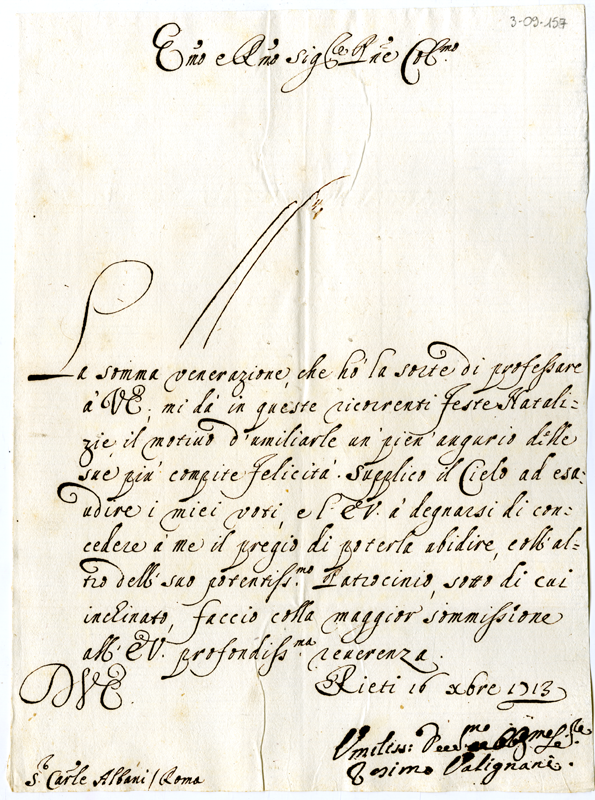 3-09-157
Emo e Rmo Sig.re Pne Col.mo
La somma venerazione, che hò la sorte di professare
à VE, mi dà in queste ricorrenti feste Natali=
zie il motiuo d'umiliarle un' pien' augurio delle
sue più compite felicità. Supplico il Cielo ad esa=
udire i miei voti, e l'EV. à degnarsi di con=
cedere à me il pregio di poterla abidire, coll' al=
tro dell' suo potentiss.mo Patrocinio, sotto di cui
inclinato, faccio colla maggior sommissione
all' EV. profondiss.ma reuerenza.
DVE.
Rieti 16 xbre 1713
Vmiliss:
Valignani.
S.r Car.le Albani / Roma